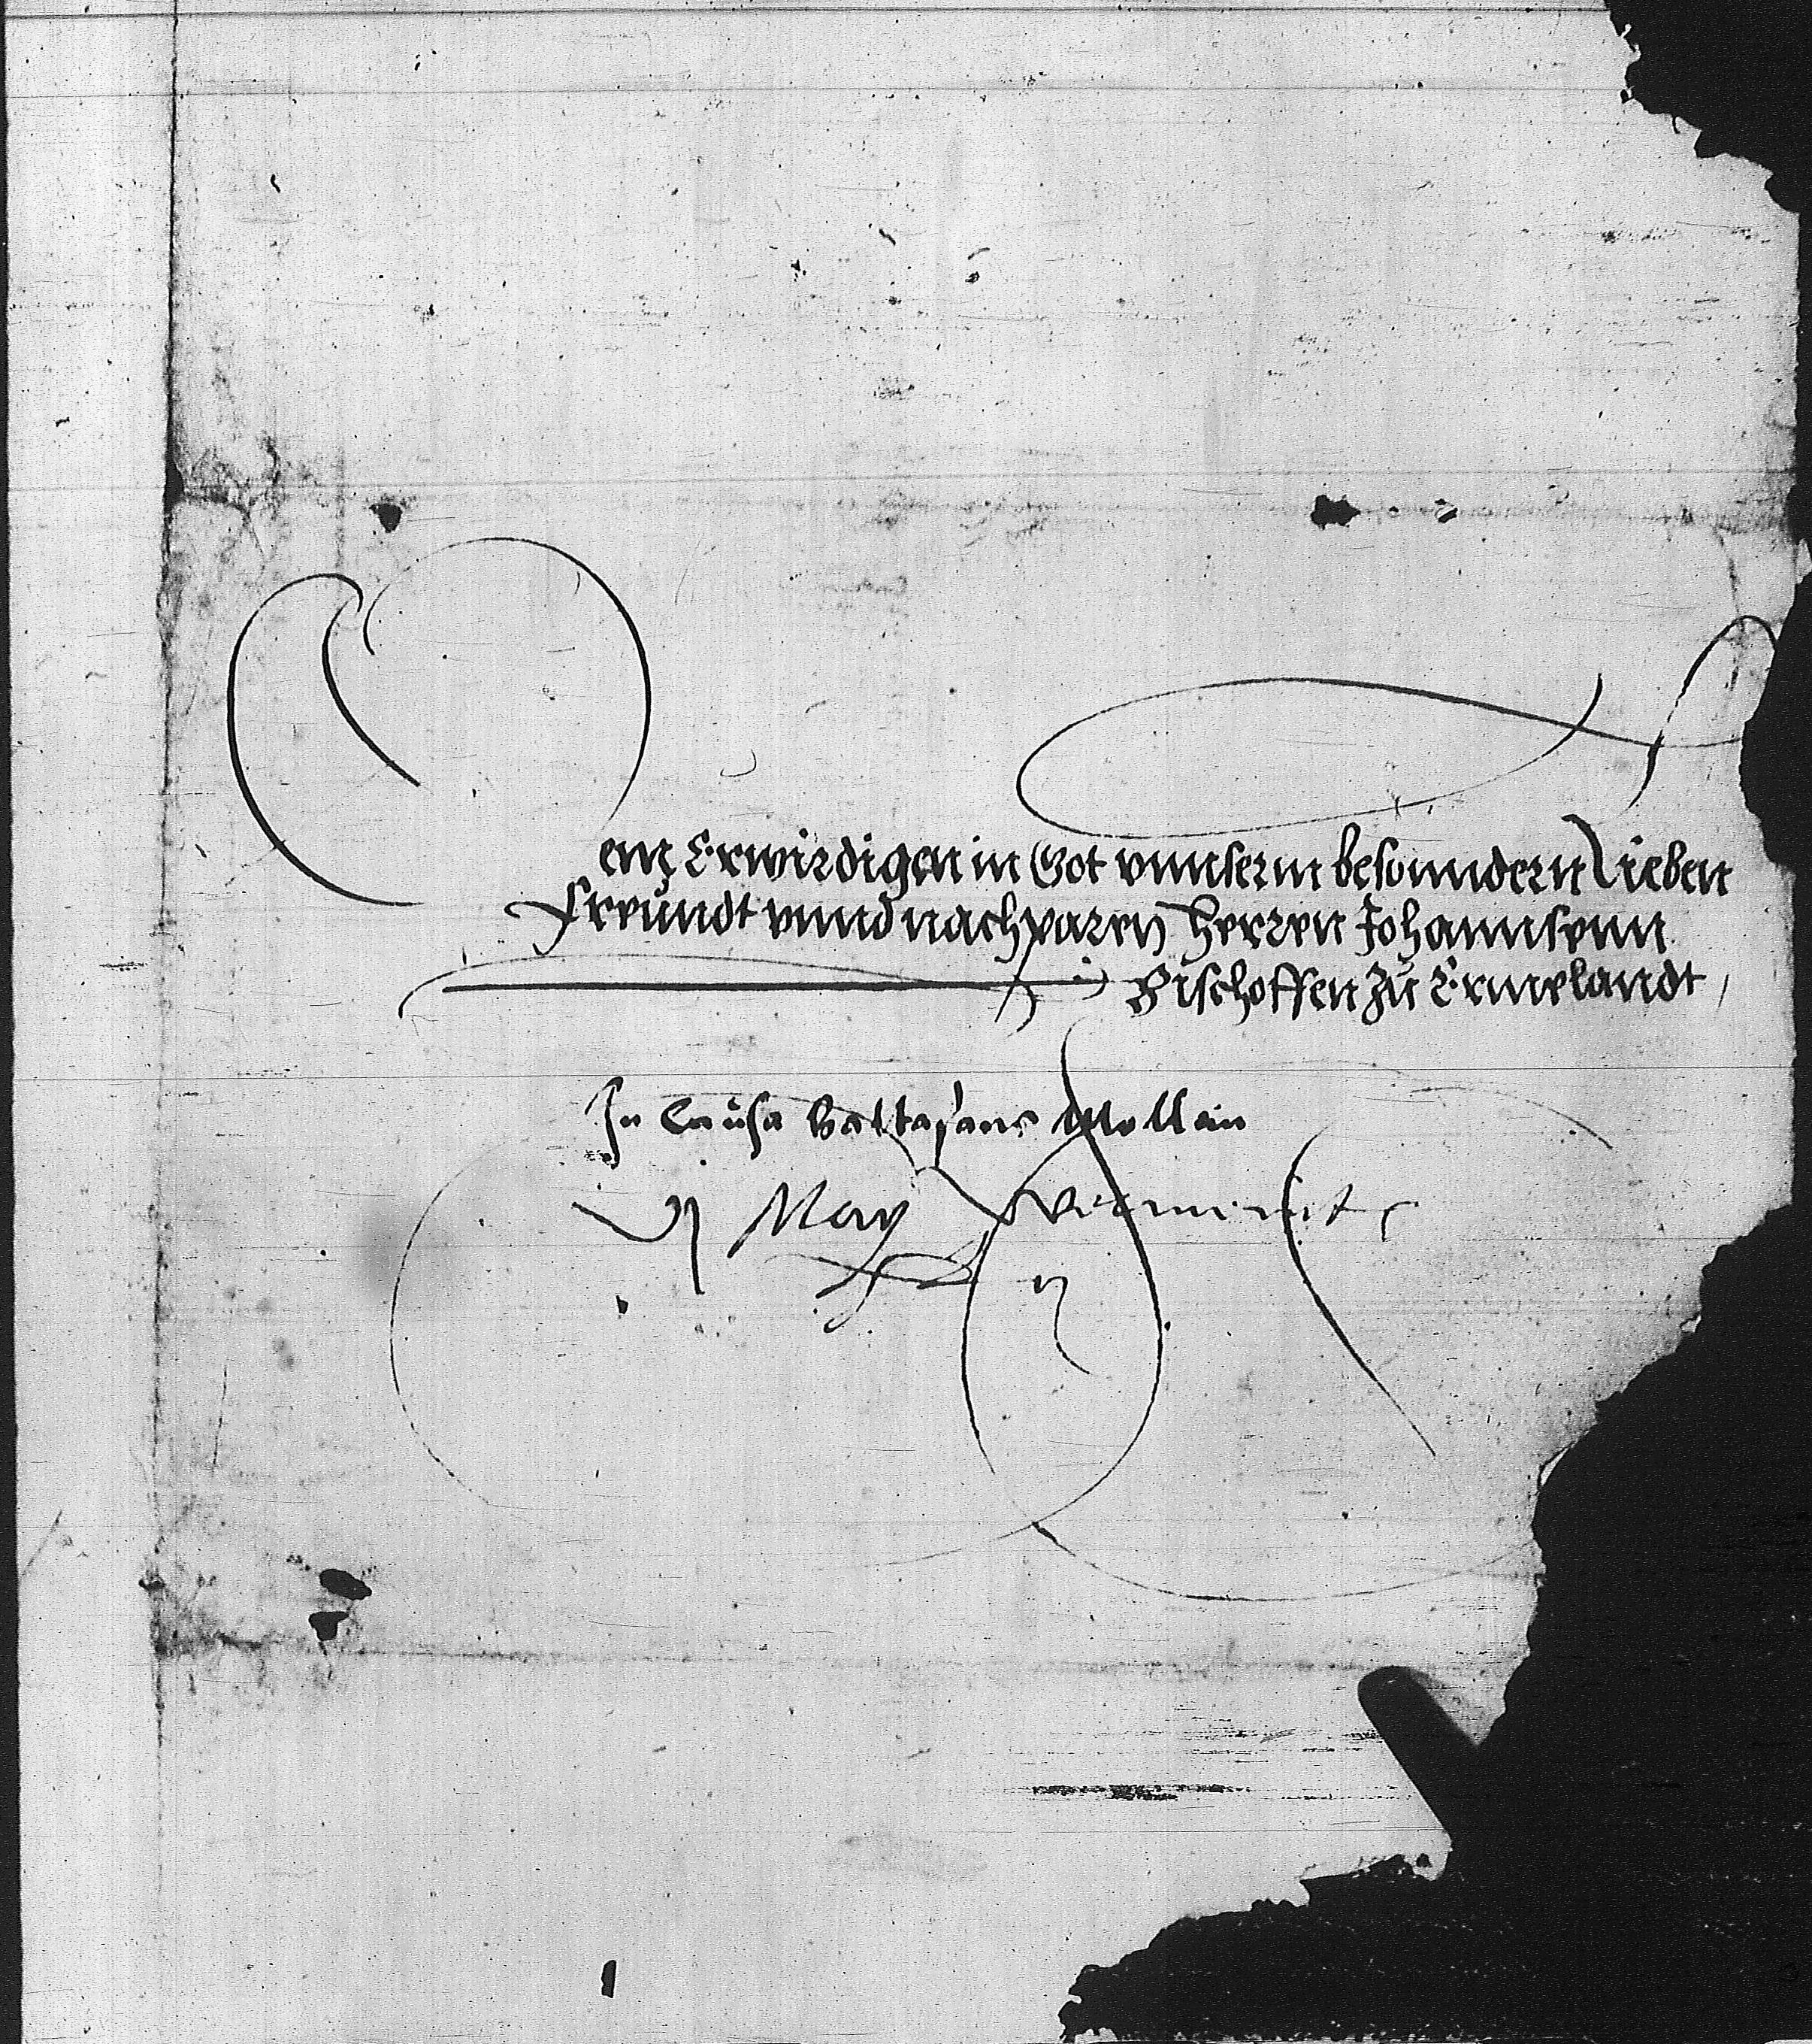 Dem Erwirdigen in Got vnnserm besonndern Lieben
Freundt vnnd nachparen Herren Johannsenn
Bischoffen zu Ermelandt
In Causa
May